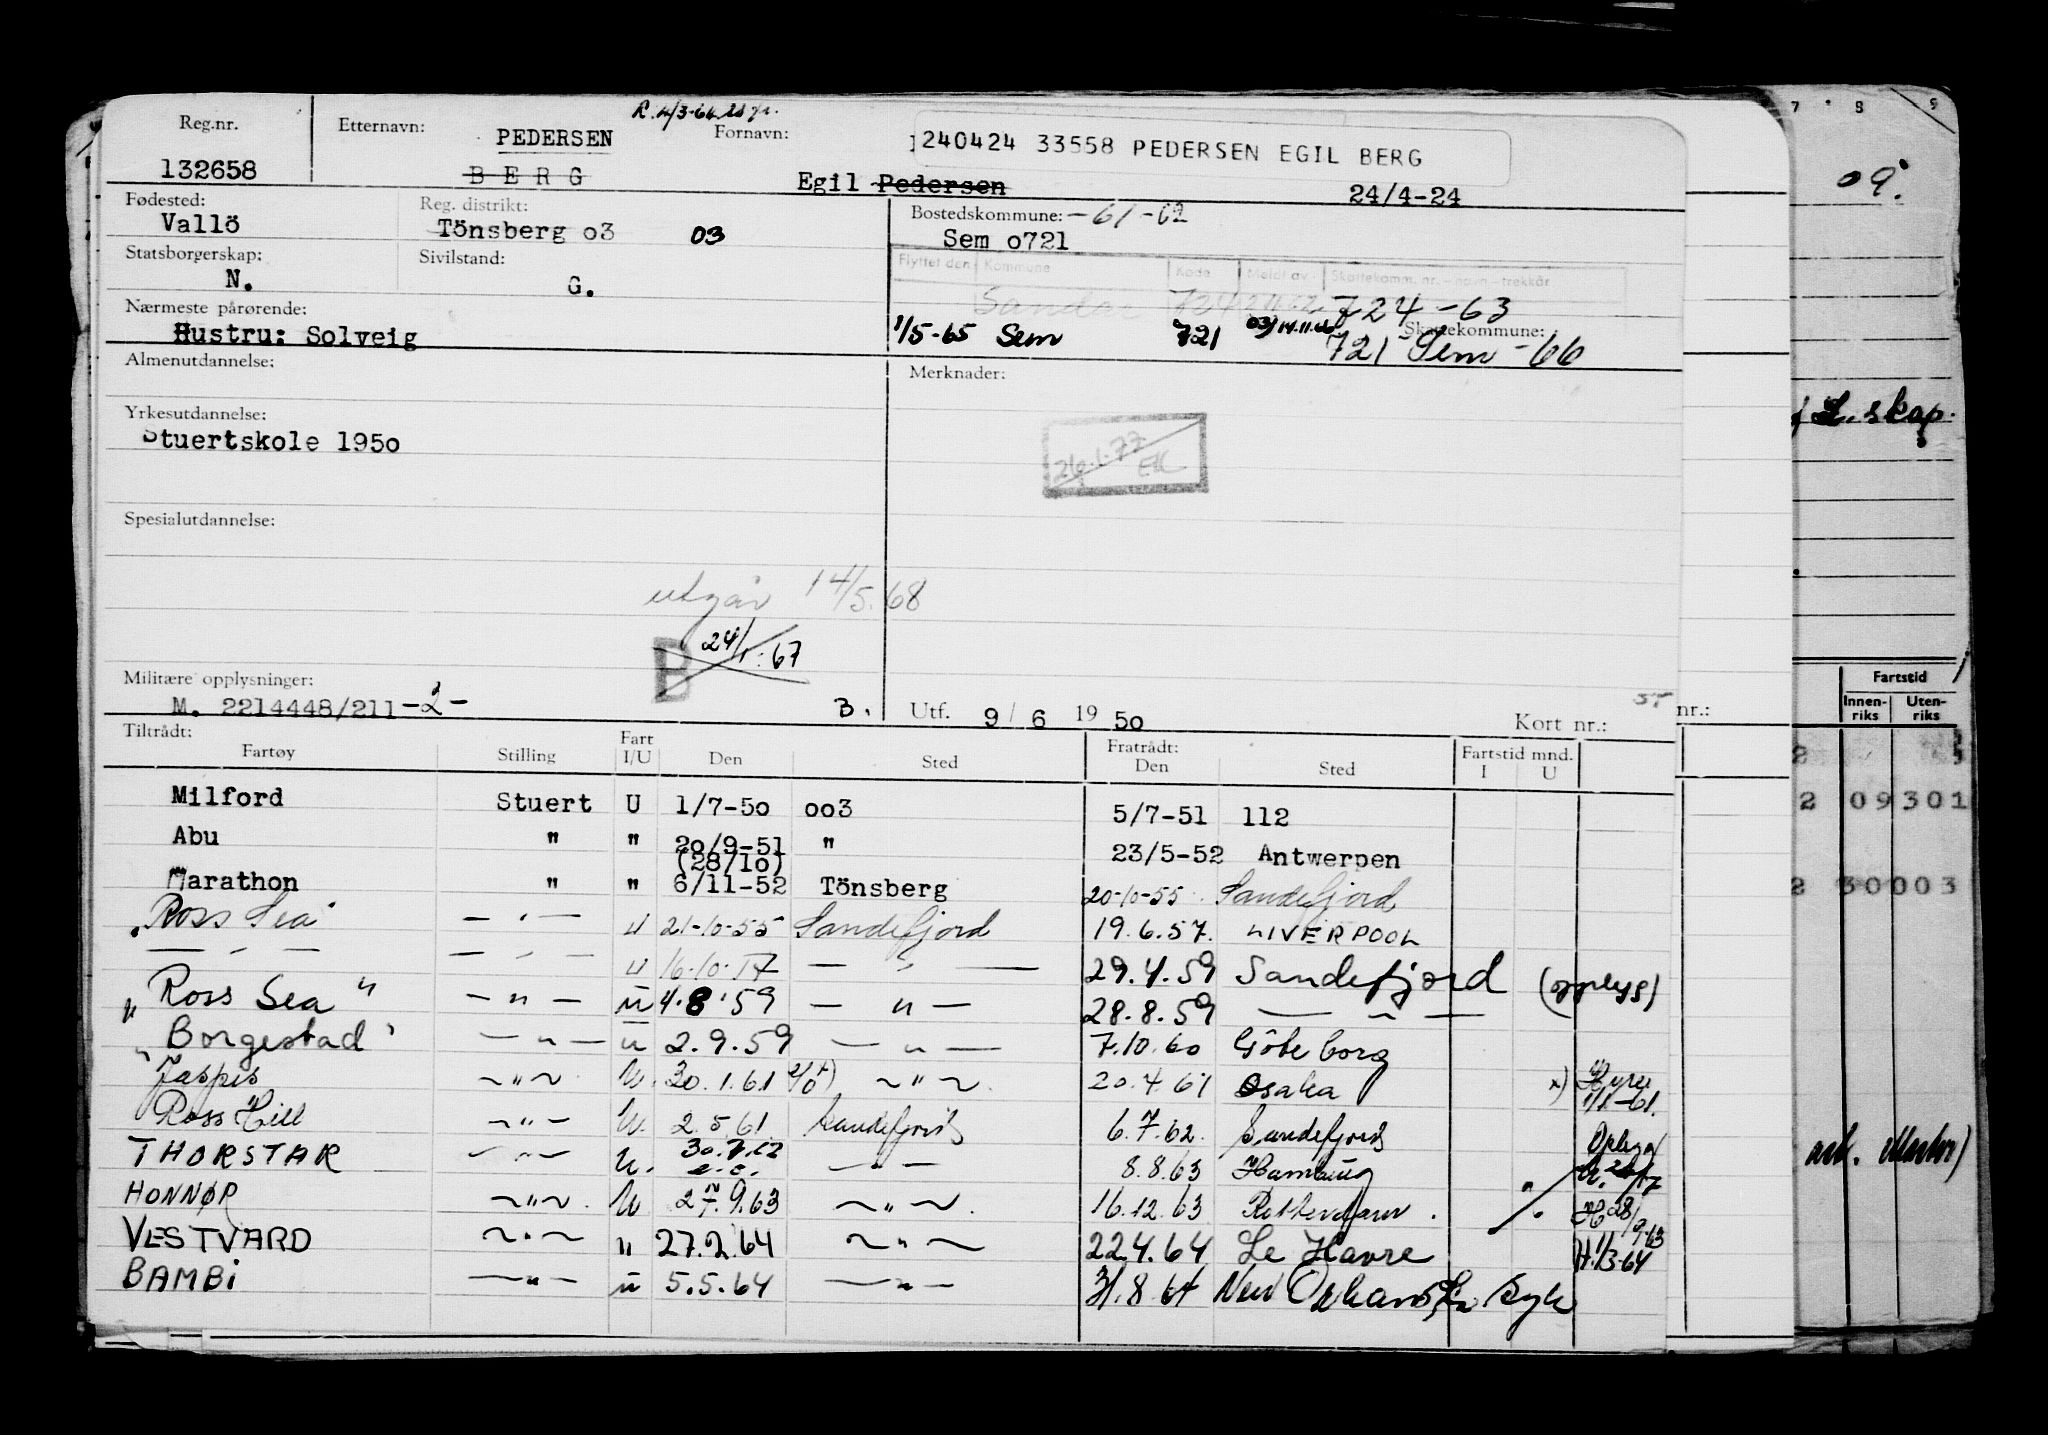 R. 4/3-64
Reg.nr. Etternavn: PEDERSEN Fornavn: 240424 33558 PEDERSEN EGIL BERG
132658 B E R G Egil Pedersen 24/4-24
Fødested: Reg. distrikt: Bostedskommune: -61-62
Vallö Tönsberg o3 03 Sem o721
Statsborgerskap: Sivilstand: Flyttet den Kommune Kode Meldt av Skattekomm. nr. - navn - trekkår
N. G. Sandar 724 724-63
Nærmeste pårørende: Skattekommune:
Hustru: Solveig 1/5-65 Sem 721 03/14.11.66 721 Sem -66
Almenutdannelse: Merknader:
Yrkesutdannelse:
Stuertskole 195o 26.1.77 EK
Spesialutdannelse:
utgår 14/5.68
B 24/1.67
Militære opplysninger:
M. 2214448/211-2- 3. Utf. 9/6 19 5o Kort nr.: nr.:
Tiltrådt: Fartøy Stilling Fart I/U Den Sted Fratrådt: Den Sted Fartstid mnd. I U
Milford Stuert U 1/7-5o oo3 5/7-51 112
Abu " " 2o/9-51 " 23/5-52 Antwerpen
(28/1o)
Marathon " " 6/11-52 Tönsberg 20-10-55 Sandefjord
"Ross Sea" — " — U 21-10-55 Sandefjord 19.6.57. LIVERPOOL
— " — — " — U 16.10.57 — " — 29.4.59 Sandefjord (opplyst)
"Ross Sea" — " — U 4.8.59 — " — 28.8.59 — " —
"Borgestad" — " — U 2.9.59 — " — 7.10.60 Göteborg
Jaspis — " — U. 30.1.61 x) — " — 20.4.61 Osaka x) Hyre 1/1-61.
Ross Hill — " — U. 2.5.61 Sandefjord 6.7.62. Sandefjord
THORSTAR — " — U. 30.7.62 — " — 8.8.63 Hamburg
HONNØR — " — U 27.9.63 — " — 16.12.63 Rotterdam. H 28/9-63
VESTVARD — " — " 27.2.64 — " — 22.4.64 Le Havre H. 1/3-64
BAMBI — " — U 5.5.64 — " — 31.8.64 New Orleans, La syk
7 8 9
09.
skap.
Fartstid
Innenriks Utenriks
2 09301
2 30003